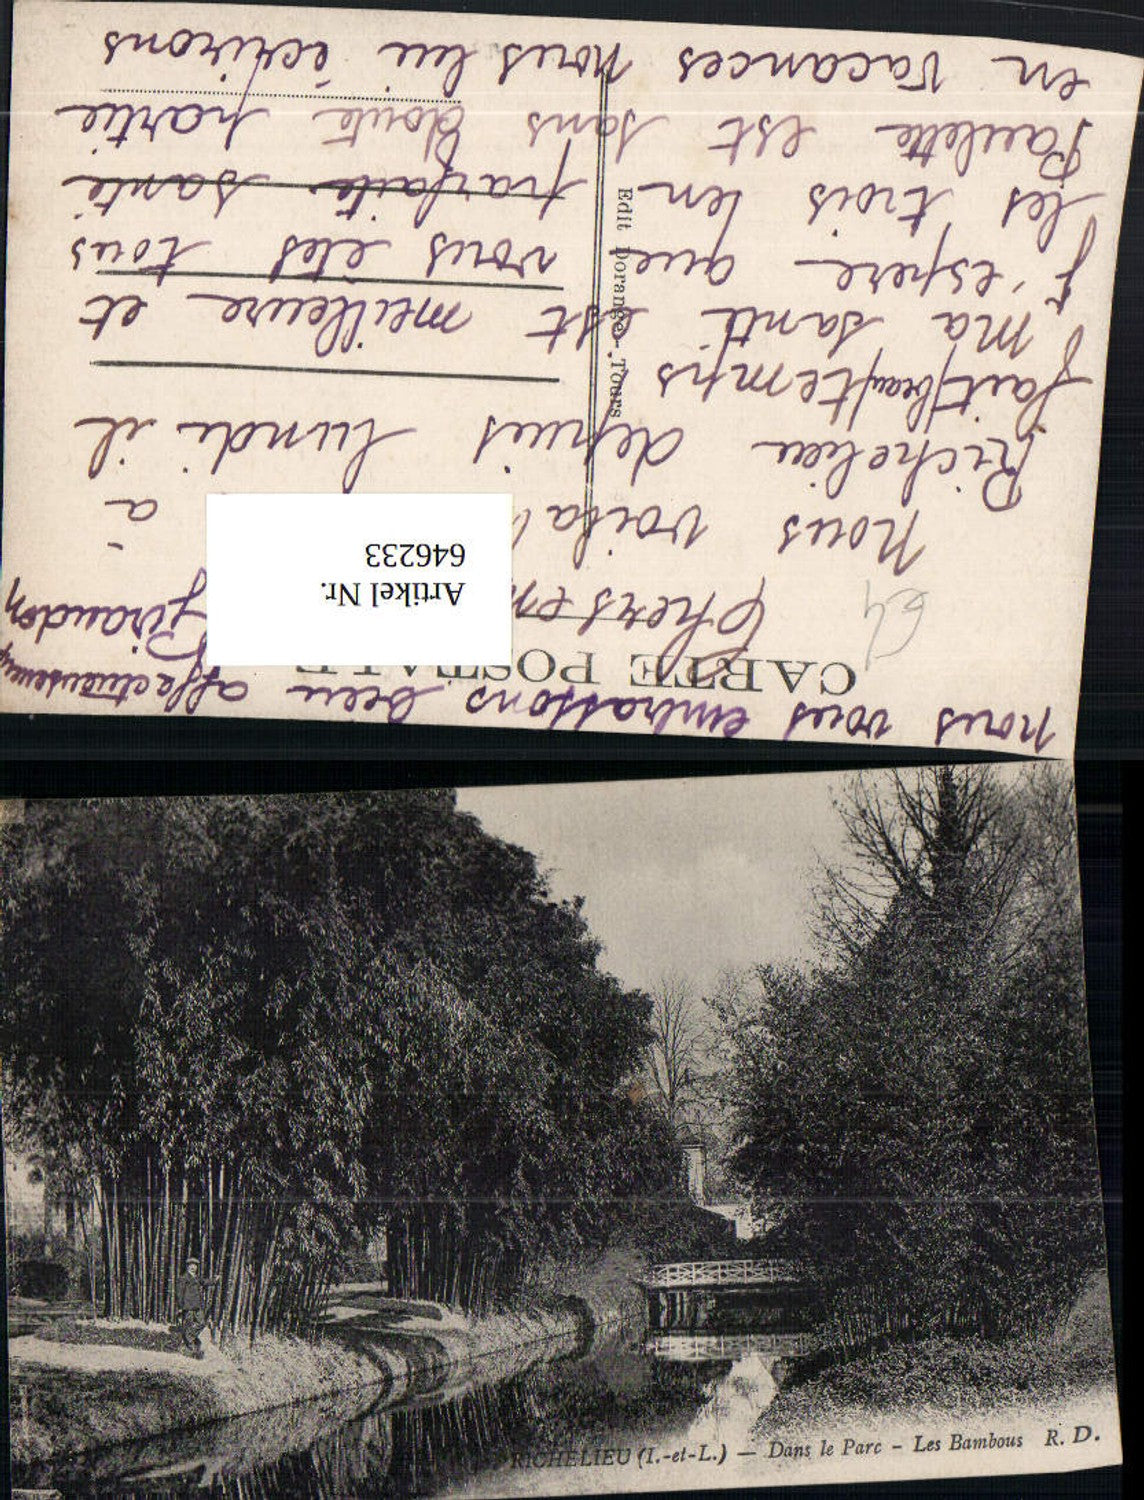 nous vous embrassons bien affectueusement
CARTE POSTALE
Giraudon
Artikel Nr.
646233
64
Chers
nous voila à
Richelieu depuis lundi il
fait beau temps
ma santé est meilleure et
j'espere que vous etes tous
les trois en parfaite santé
Paulette est sans doute partie
en vacances nous lui écrirons
Edit Dorange - Tours
RICHELIEU (I.-et-L.) — Dans le Parc - Les Bambous R. D.